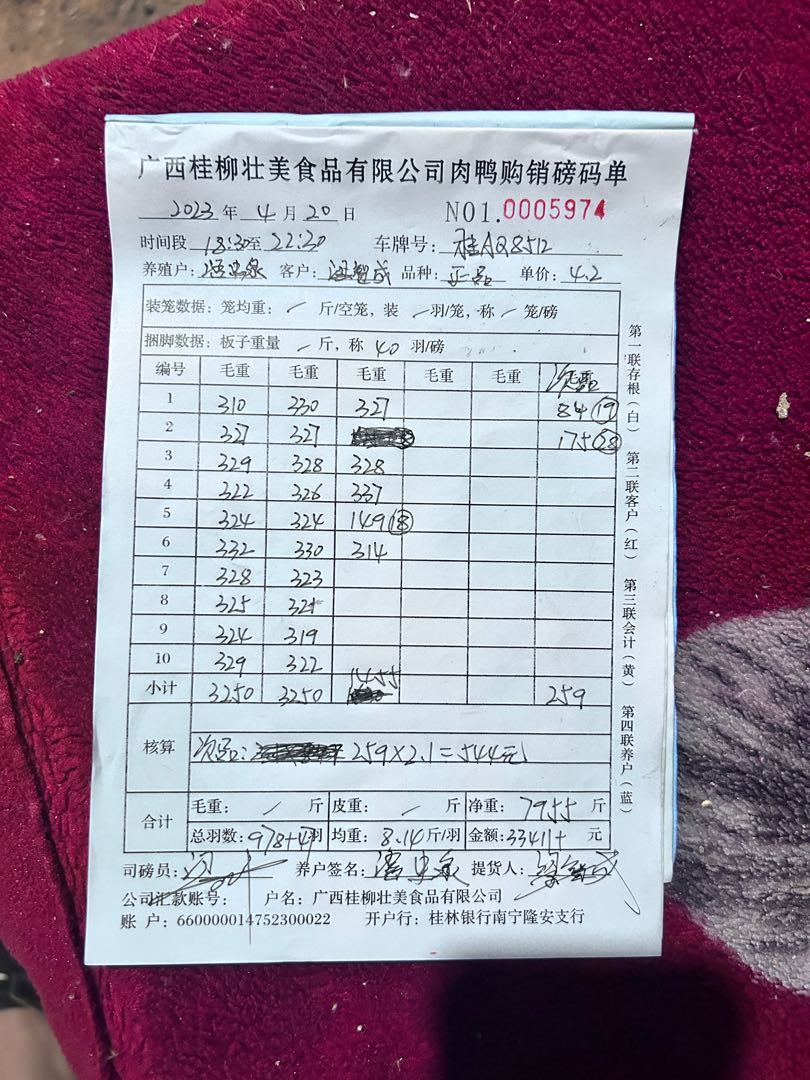 广西桂柳壮美食品有限公司肉鸭购销磅码单
2023年 4月 20日 NO1.0005974
时间段 18:30至 22:30 车牌号：桂AQ8512
养殖户： 客户： 品种：正品 单价：4.2
装笼数据：笼均重： / 斤/空笼，装 / 羽/笼，称 / 笼/磅
捆脚数据：板子重量 / 斤，称 40 羽/磅
编号 毛重 毛重 毛重 毛重 毛重 次品
1 310 330 327 84 19
2 327 327 175 38
3 329 328 328
4 322 326 337
5 324 324 149 18
6 332 330 314
7 328 323
8 325 321
9 324 319
10 329 322
小计 3250 3250 1455 259
核算 次品： 259×2.1=544元
合计 毛重： / 斤 皮重： / 斤 净重：7955 斤
总羽数：978+ 羽 均重：8.14斤/羽 金额：33411+ 元
司磅员： 养户签名： 提货人：
公司汇款账号： 户名：广西桂柳壮美食品有限公司
账 户：660000014752300022 开户行：桂林银行南宁隆安支行
第一联存根（白） 第二联客户（红） 第三联会计（黄） 第四联养户（蓝）